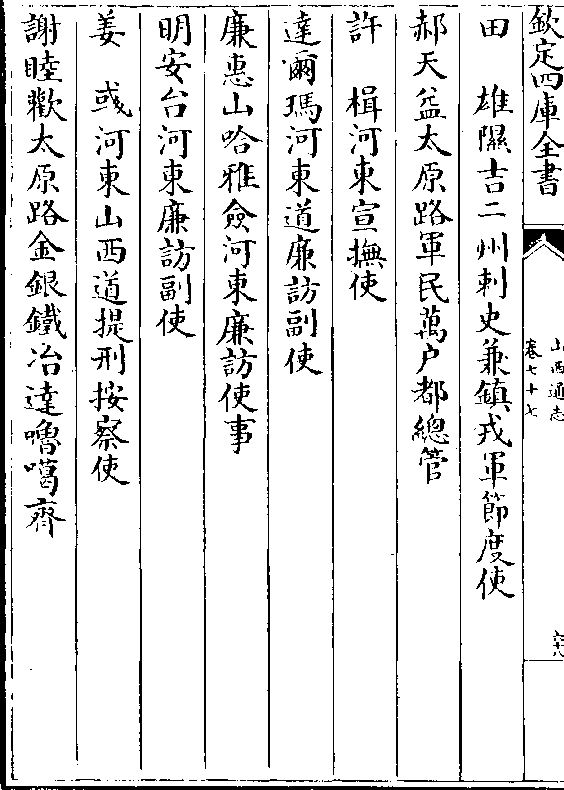 欽定四庫全書
山西通志
卷七十七
六十八
田　雄隰吉二州刺史兼鎮戎軍節度使
郝天益太原路軍民萬户都總管
許　楫河東宣撫使
達爾瑪河東道廉訪副使
廉惠山哈雅僉河東廉訪使事
明安台河東廉訪副使
姜　彧河東山西道提刑按察使
謝睦歡太原路金銀鐵冶達嚕噶齊